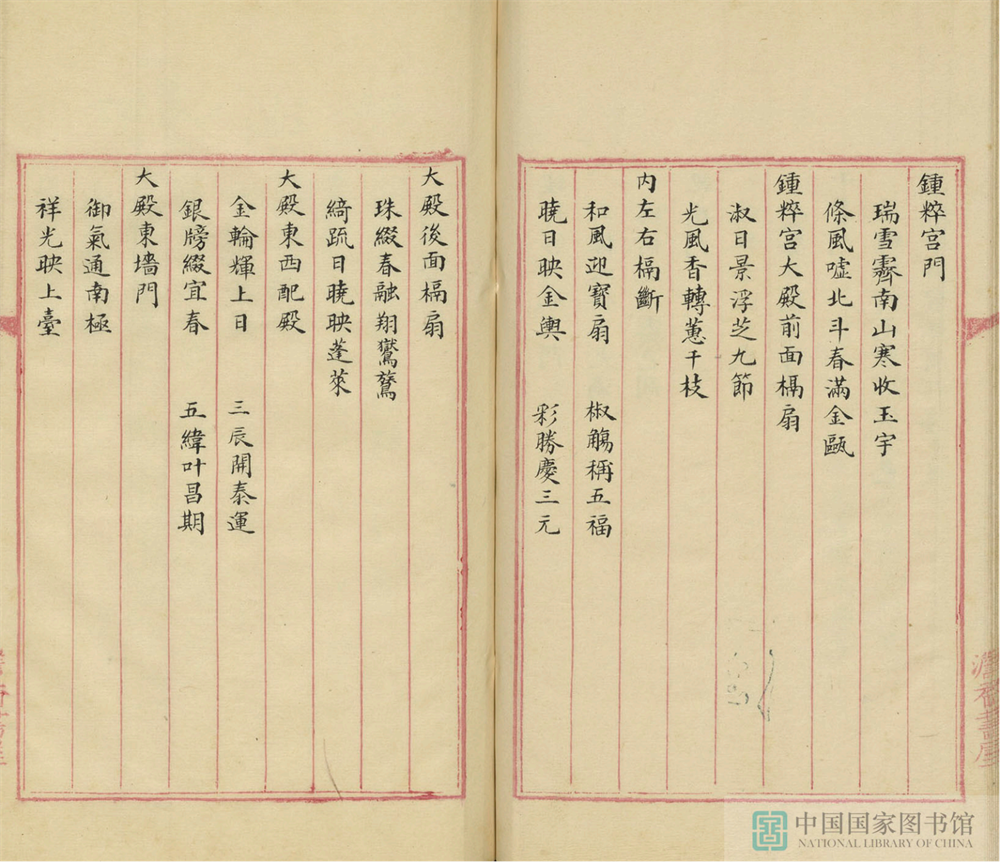 鍾粹宮門
瑞雪霽南山寒收玉宇
條風噓北斗春滿金甌
鍾粹宮大殿前面槅扇
淑日景浮芝九節
光風香轉蕙千枝
内左右槅斷
和風迎寶扇 椒觴稱五福
曉日映金輿 彩勝慶三元
大殿後面槅扇
珠綴春融翔鸑鷟
綺疏日曉映蓬萊
大殿東西配殿
金輪輝上日 三辰開泰運
銀牓綴宜春 五緯叶昌期
大殿東墻門
御氣通南極
祥光映上臺
中国国家图书馆
NATIONAL LIBRARY OF CHINA